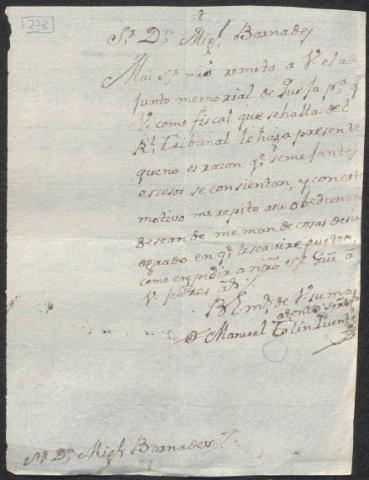 278
Sr. Dn. Migl. Barnades
Mui Sr. mio remito a V. el ad
junto memorial de Quexa pa. qe.
V. como fiscal que se halla del
Rl. Tribunal le haga presente
que no es razon qe. semejantes
excesos se consientan, y con este
motivo me repito a su obediencia
deseando me mande cosas de su
agrado en qe. le servire pustoso,
como en pedir a nro Sr. Gue. a
V. 
B. L. mo. de V. su mas
atento Servr.
Dr. Manuel Tolin
Sr. Dn. Migl. Barnades